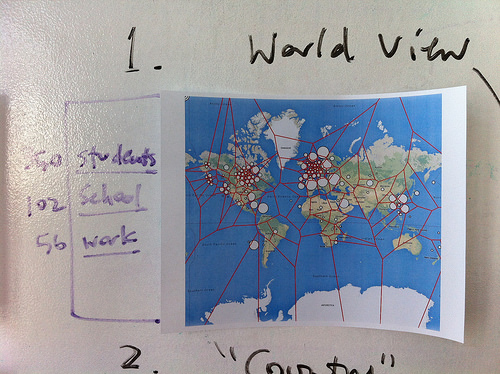 1. World View
50 Students
102 School
56 Work
2. "Country"